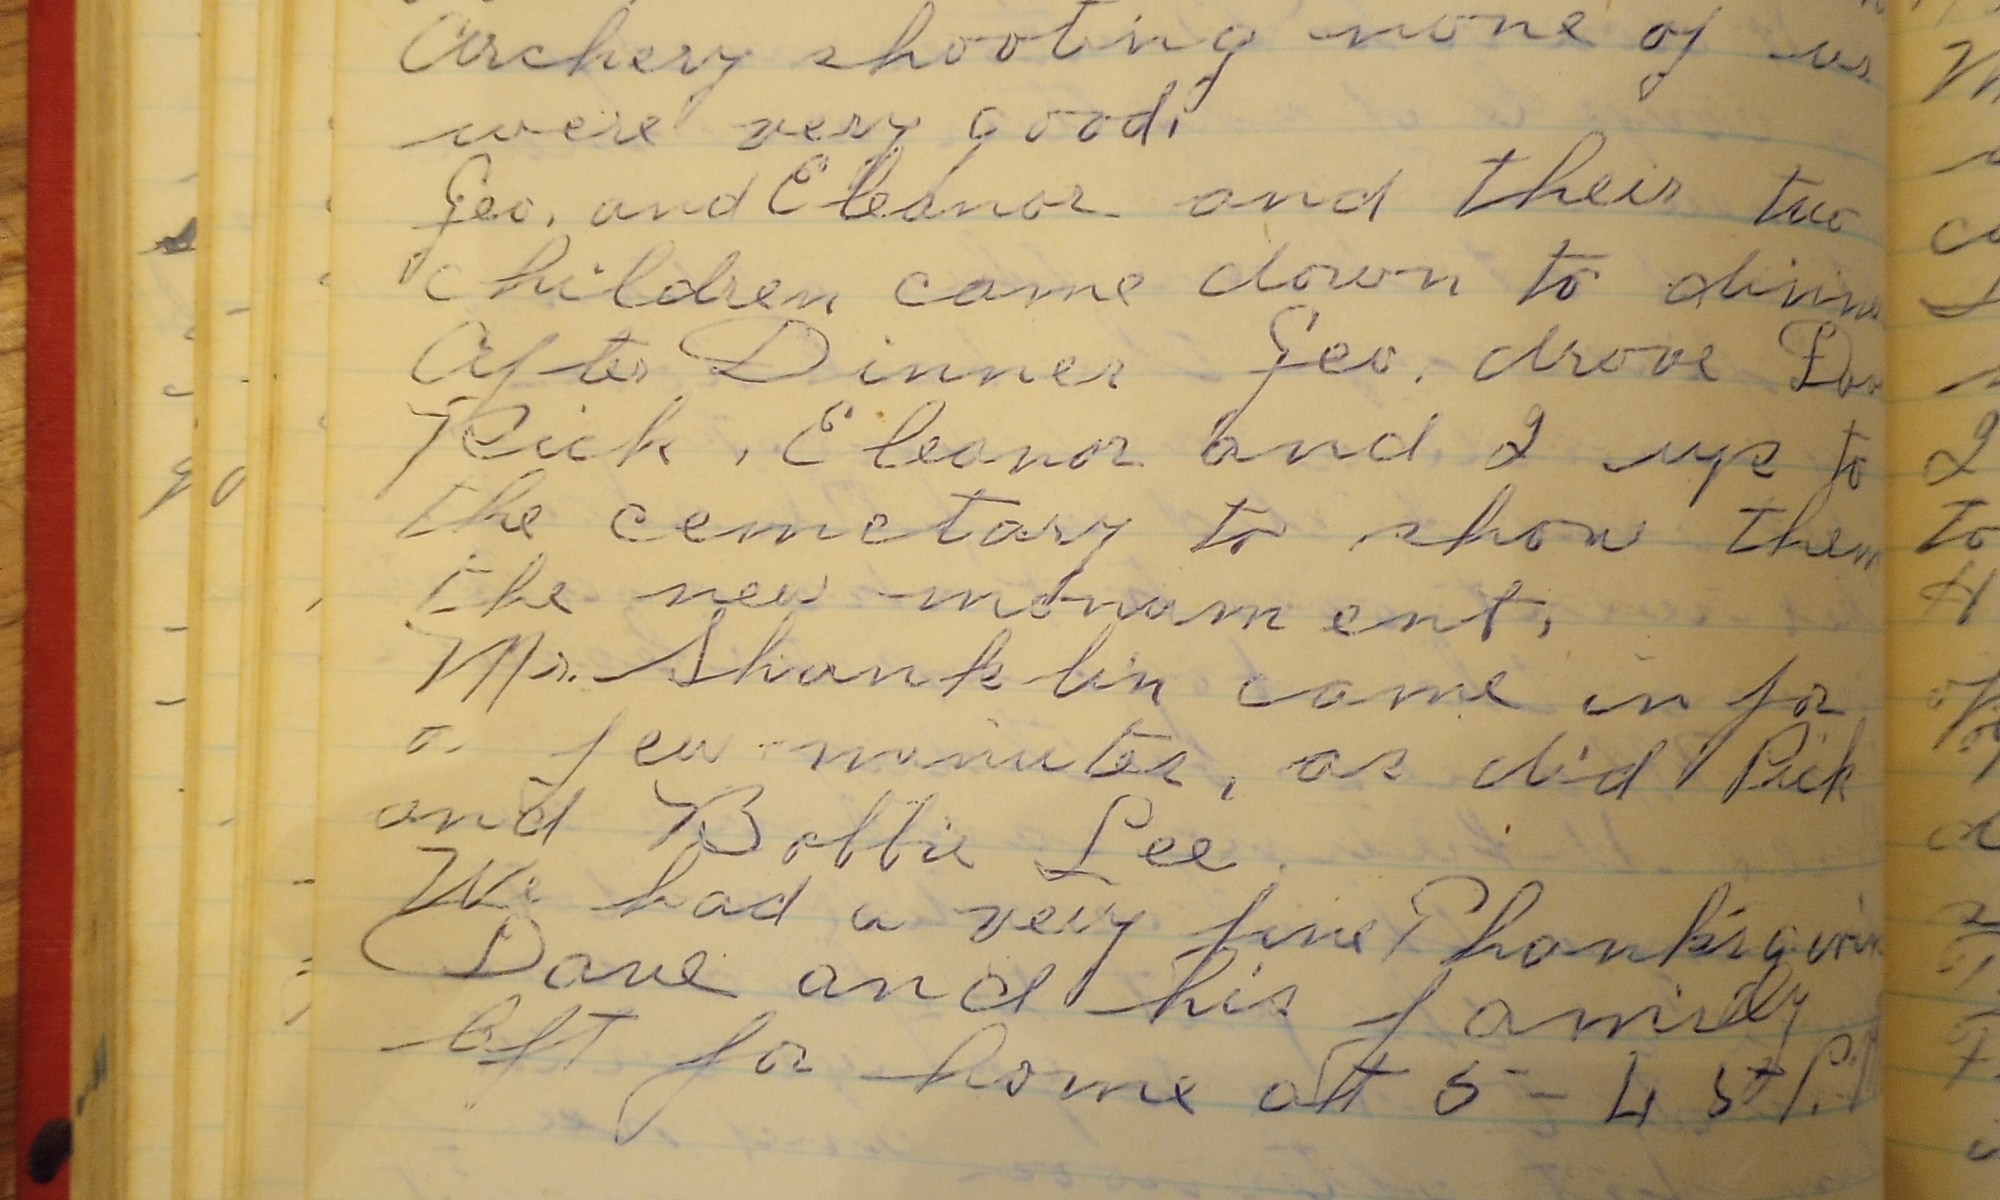 Archery shooting none of us
were very good.
Geo. and Eleanor and their two
children came down to
After Dinner Geo. drove
Rick, Eleanor and I up to
the cemetary to show them
the new monament.
Mr. Shanklin came in for
a few minutes, as did Rick
and Bobbie Lee.
We had a very fine
Dave and his family
left for home at 5-45